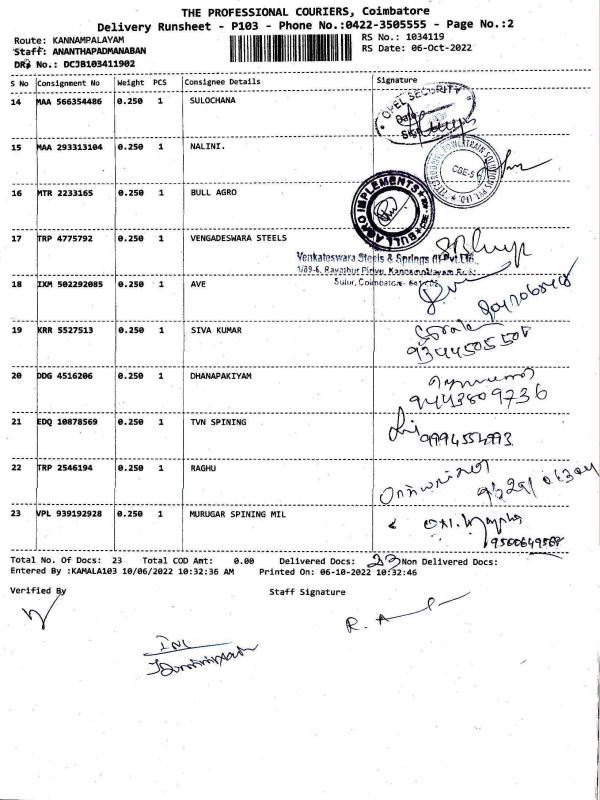 THE PROFESSIONAL COURIERS, Coimbatore
Delivery Runsheet - P103 - Phone No.:0422-3505555 - Page No.:2
Route: KANNAMPALAYAM
RS No.: 1034119
Staff: ANANTHAPADMANABAN
RS Date: 06-Oct-2022
DRS No.: DCJB103411902
S No Consignment No Weight PCS Consignee Details Signature
14 MAA 566354486 0.250 1 SULOCHANA
OPEL SECURITY
15 MAA 293313104 0.250 1 NALINI.
16 MTR 2233165 0.250 1 BULL AGRO
BULL AGRO IMPLEMENTS
17 TRP 4775792 0.250 1 VENGADESWARA STEELS
Venkateswara Steels & Springs (I) Pvt.Ltd.,
18 IXM 502292085 0.250 1 AVE
19 KRR 5527513 0.250 1 SIVA KUMAR
9344505508
20 DDG 4516206 0.250 1 DHANAPAKIYAM
9443809736
21 EDQ 10878569 0.250 1 TVN SPINING
22 TRP 2546194 0.250 1 RAGHU
23 VPL 939192928 0.250 1 MURUGAR SPINING MIL
Total No. Of Docs: 23 Total COD Amt: 0.00 Delivered Docs: 23 Non Delivered Docs:
Entered By :KAMALA103 10/06/2022 10:32:36 AM Printed On: 06-10-2022 10:32:46
Verified By Staff Signature